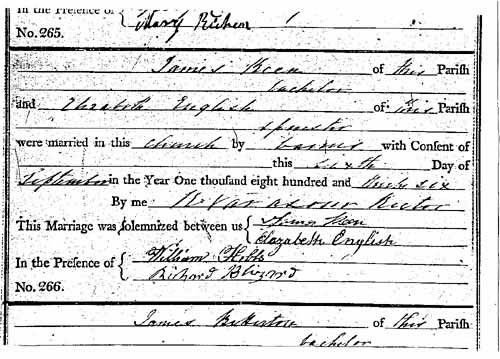 In the Presence of { Mary
No. 265.
James Keen of this Parish
bachelor
and Elizabeth English of this Parish
spinster
were married in this Church by banns with Consent of
this sixth Day of
September in the Year One thousand eight hundred and thirty six
By me Vavasour Rector
This Marriage was solemnized between us { James Keen
Elizabeth English
In the Presence of { William
Richard Blizard
No. 266.
James of this Parish
bachelor